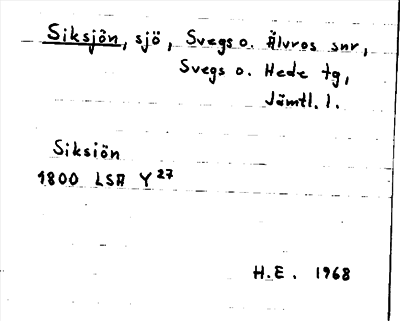 Siksjön, sjö, Svegs o. Älvros snr,
Svegs o. Hede tg,
Jämtl. l.
Siksiön
1800 LSA Y 27
H.E. 1968